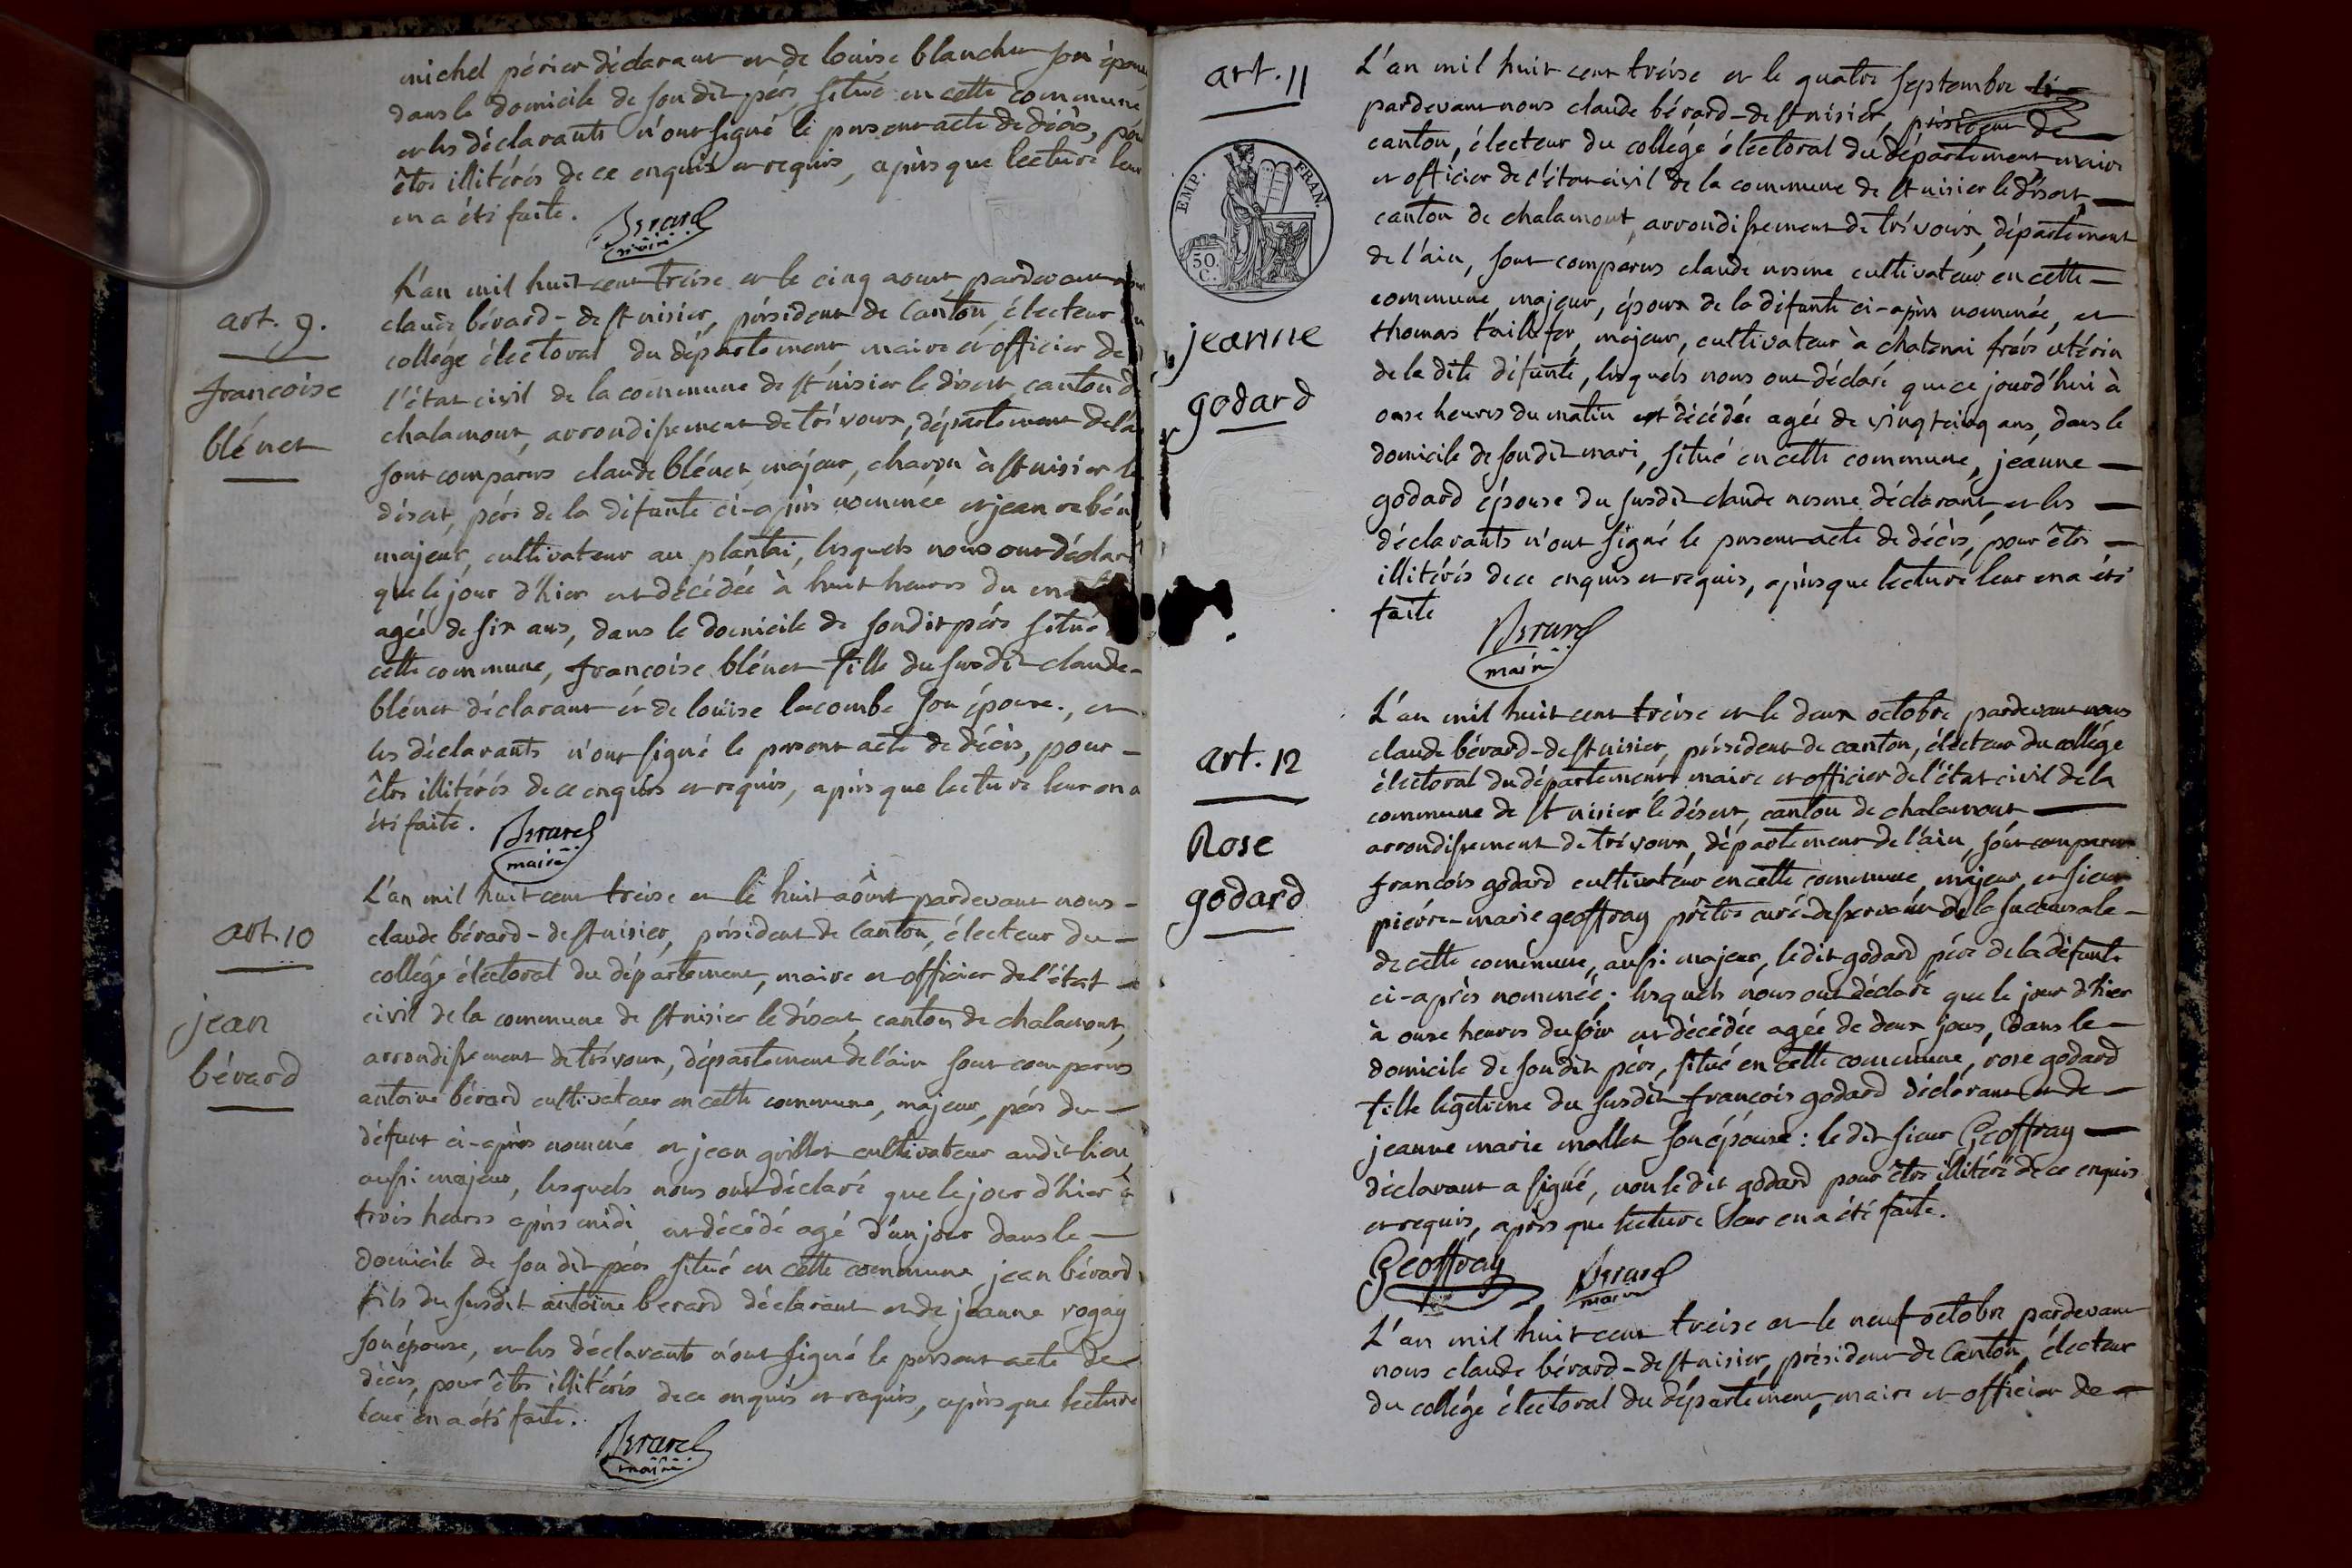 michel périer déclarant et de louise blanchet son épouse
dans le domicile de son dit père situé en cette commune
et les déclarants n'ont signé le present acte de décès, pour
être illitérés de ce enquis et requis, après que lecture leur
en a été faite.
Berard
maire
art. 9.
francoise
blénet
L'an mil huit cent treise et le cinq aoust pardevant
claude bérard-de st nisier, président de Canton, électeur
collége électoral du département maire et officier de
l'état civil de la commune de st nisier le désert, canton d
chalamont, arrondissement de trévoux, département de l'a
sont comparus claude blénet, majeur, charon à st nisier le
désert, père de la défunte ci-après nommée et jean
majeur, cultivateur au plantai, lesquels nous ont déclaré
que le jour d'hier est décédée à huit heures du
agée de six ans, dans le domicile de son dit père situé
cette commune, françoise blénet fille du susdit claude-
blénet déclarant et de louïse lacombe son épouse., et
les déclarants n'ont signé le present acte de décès, pour-
être illitérés de ce enquis et requis, après que lecture leur en a
été faite.
Berard
maire
art. 10
jean
bérard
L'an mil huit cent treise et le huit aoust pardevant nous-
claude bérard-de st nisier, président de Canton, électeur du-
collége électoral du département, maire et officier de l'état-
civil de la commune de st nisier le désert, canton de chalamont,
arrondissement de trévoux, département de l'ain sont comparus
antoine bérard cultivateur en cette commune, majeur, père du-
défunt ci-après nommé et jean guillot cultivateur audit lieu,
aussi majeur, lesquels nous ont déclaré que le jour d'hier à
trois heures après midi est décédé agé d'un jour dans le-
domicile de son dit père situé en cette commune jean bérard
fils du susdit antoine berard déclarant et de jeanne rogay
son épouse, et les déclarants n'ont signé le present acte de
décès, pour être illitérés de ce enquis et requis, après que lecture
leur en a été faite.
Berard
maire
art. 11
EMP. FRAN.
50.
C.
jeanne
godard
L'an mil huit cent treise et le quatre septembre
pardevant nous claude bérard-de st nisier, président de
canton, électeur du collégé électoral du département maire
et officier de l'état civil de la commune de st nisier le désert,
canton de chalamont, arrondissement de trévoux, département
de l'ain, sont comparus claude cultivateur en cette-
commune, majeur, époux de la défunte ci-après nommée, et
thomas taillefer, majeur, cultivateur à chatenai frère utérin
de la dite défunte, lesquels nous ont déclaré que ce jourd'hui à
onse heures du matin est décédée agée de vingt cinq ans, dans le
domicile de son dit mari, situé en cette commune, jeanne-
godard épouse du susdit claude déclarant et les-
déclarants n'ont signé le present acte de décès, pour être-
illitérés de ce enquis et requis, après que lecture leur en a été
faite
Berard
maire
art. 12
Rose
godard
L'an mil huit cent treise et le deux octobre pardevant nous
claude bérard-de st nisier, président de canton, électeur du collége
électoral du département maire et officier de l'état civil de la
commune de st nisier le désert, canton de chalamont-
arrondissement de trévoux, département de l'ain, sont comparus
francois godard cultivateur en cette commune, majeur, et sieur
pierre-marie geoffray prêtre curé-desservant de la succursale-
de cette commune, aussi majeur, le dit godard père de la défunte
ci-après nommée; lesquels nous ont déclaré que le jour d'hier
à onse heures du soir est décédée agée de deux jours, dans le-
domicile de son dit père, situé en cette commune, rose godard
fille légitime du susdit françois godard déclarant et de-
jeanne marie mallet son épouse: le dit sieur Geoffray-
déclarant a signé, non le dit godard pour être illitéré de ce enquis
et requis, après que lecture leur en a été faite.
Geoffray
Berard
maire
L'an mil huit cent treise et le neuf octobre pardevant
nous claude bérard-de st nisier, président de Canton, électeur
du collégé électoral du département, maire et officier de